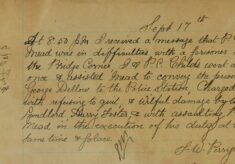 Sept 17th
At 8.50 pm I received a message that P.C.
Mead was in difficulties with a prisoner a
the Bridge Corner. I & P.C. Childs went a
once & assisted Mead to convey the prison
George Dellow to the Police Station, Charged
with refusing to quit, & wilful damage by
Landlord Harry Foster & with assaulting P
Mead in the execution of his duty at
same time & place.